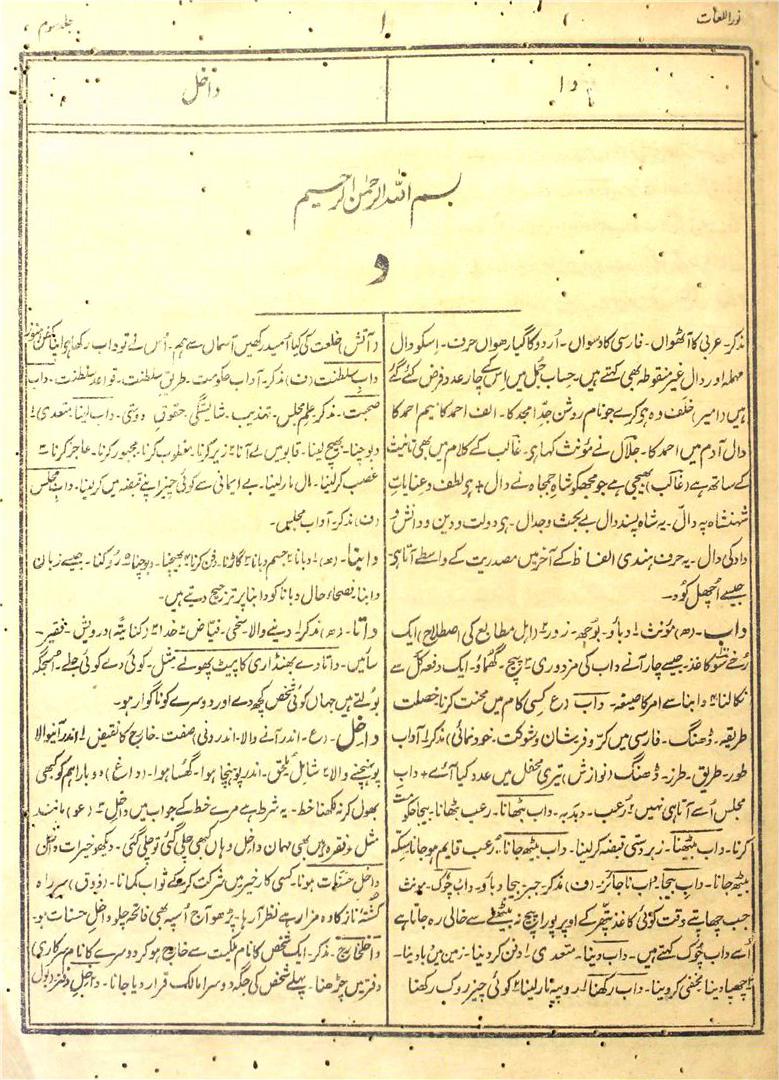 نور اللغات
۱
جلد سوم
دا
داخل
بسم اللہ الرحمٰن الرحیم
د
مذکر۔ عربی کا آٹھواں۔ فارسی کا دسواں۔ اُردو کا گیارھواں حرف۔ اِسکو دال
مہملہ اور دال غیر منقوطہ بھی کہتے ہیں۔ حساب جُمل میں اس کے چار عدد فرض کئے گئے
ہیں (امیر) خلف وہ ہو کرے جو نام روشن جدِّ امجد کا۔ الف احمد کا میم احمد کا
دال آدم میں احمد کا۔ جلال نے مؤنث کہا ہی۔ غالب کے کلام میں بھی تانیث
کے ساتھ ہے (غالب) بھیجی ہے جو مجھکو شاہِ جمجاہ نے دال + ہو لطف و عنایاتِ
شہنشاہ پہ دالّ۔ یہ شاہ پسند دال بے بحث و جدال۔ ہی دولت و دین و دانش و
داد کی دال۔ یہ حرف ہندی الفاظ کے آخر میں مصدریت کے واسطے آتا ہی
جیسے اُچھل کُود۔
داب۔ (ھ) مؤنث ۱ دباؤ۔ بوجھ۔ زور ۲ (اہل مطابع کی اصطلاح) ایک
رُخے سو کاغذ جیسے چار آنے داب کی مزدوری ۳ پیچ۔ گھماؤ۔ ایک دفعہ کل سے
نکالنا ۴ دابنا سے امر کا صیغہ۔ داب (ع کسی کام میں محنت کرنا۔ خصلت
طریقہ۔ ڈھنگ۔ فارسی میں کرّ و فر شان و شوکت۔ خودنمائی) مذکر ۱ آداب
طور۔ طریق۔ طرز۔ ڈھنگ (نوازش) تیری محفل میں عدد کیا آئے + دابِ
مجلس اُسے آتا ہی نہیں ۲ رُعب۔ دبدبہ۔ داب بٹھانا۔ رعب بٹھانا۔ بیجا حکومت
کرنا۔ داب بیٹھنا۔ زبردستی قبضہ کر لینا۔ داب بیٹھ جانا۔ رعب قائم ہو جانا سکّہ
بیٹھ جانا۔ دابِ بیجا۔ دابِ ناجائز۔ (ف) مذکر۔ جبر بیجا دباؤ۔ داب چوک۔ مونث
جب چھاپتے وقت کوئی کاغذ پتھر کے اوپر پورا پیچ نہ بیٹھنے سے خالی رہ جاتا ہے
اُسے داب چوک کہتے ہیں۔ داب دینا۔ متعدی ۱ دفن کر دینا۔ زمین میں دبا دینا۔
۲ چھپا دینا۔ مخفی کر دینا۔ داب رکھنا۔ ۱ روپیہ مار لینا ۲ کوئی چیز روک رکھنا
(آتش) خلعت کی کیا اُمید رکھیں آسماں سے ہم۔ اُس نے تو داب رکھا ہی اپنا کفن ہنوز
دابِ سلطنت (ف) مذکر۔ آداب حکومت۔ طریق سلطنت۔ قواعد سلطنت۔ دابِ
صحبت۔ مذکر۔ علمِ مجلس۔ تہذیب۔ شایستگی۔ حقوقِ دوستی۔ داب لینا۔ متعدی) ۱
دبوچنا۔ بھیچ لینا۔ قابو میں لے آنا ۲ زیر کرنا۔ مغلوب کرنا۔ مجبور کرنا۔ عاجز کرنا ۳
غصب کر لینا۔ مال مار لینا۔ بے ایمانی سے کوئی چیز اپنے قبضہ میں کر لینا۔ دابِ مجلس
(ف) مذکر۔ آداب مجلس۔
دابنا۔ (ھ) ۱ دبانا ۲ جسم دبانا ۳ گاڑنا۔ دفن کرنا ۴ بھینچنا۔ دبوچنا ۵ روکنا۔ جیسے زبان
دابنا۔ فصحائے حال دبانا کو دابنا پر ترجیح دیتے ہیں۔
داتا۔ (ھ) مذکر ۱ دینے والا۔ سخی۔ فیاض ۲ خدا ۳ (کنایۃً) درویش۔ فقیر۔
سائیں۔ داتا دے بھنڈاری کا پیٹ پھولے۔ مثل۔ کوئی دے کوئی جلے۔ اُس جگہ
بولتے ہیں جہاں کوئی شخص کچھ دے اور دوسرے کو ناگوار ہو۔
داخل۔ (ع۔ اندر آنے والا۔ اندرونی) صفت۔ خارج کا نقیض ۱ اندر آنیوالا
پہنچنے والا ۲ شامل۔ ملحق۔ اندر پہنچا ہوا۔ گھسا ہوا۔ (داغ) دوبارا ہم کو بھی
بھول کر نہ لکھنا خط۔ یہ شرط ہے مرے خط کے جواب میں داخل ۳ (عو) مانند
مثل۔ وہ فقرہ ہیں بھی مہمان داخل وہاں کبھی چلی گئی تو چلی گئی۔ دیکھو خیرات داخل
داخل حسنات ہونا۔ کسی کارِ خیر میں شرکت کرکے ثواب کمانا۔ (ذوق) سرِ راہ
کُشتۂ ناز کا وہ مزار ہے نظر آ رہا۔ پڑھو آج اُسپہ بھی فاتحہ چلو داخلِ حسنات ہو۔
داخل خارج۔ مذکر۔ ایک شخص کا نام ملکیت سے خارج ہو کر دوسرے کا نام (سرکاری)
دفتر میں چڑھنا۔ پہلے شخص کی جگہ دوسرا مالک قرار دیا جانا۔ داخلِ دفتر (بول